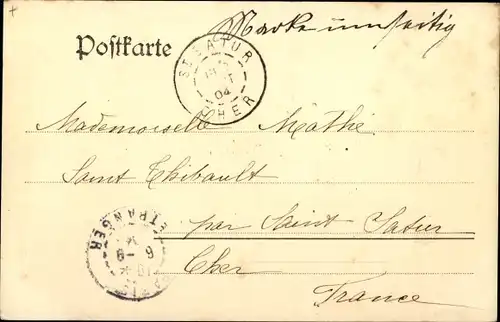 Marke umseitig
Postkarte
ST SATUR
04
CHER
Mademoiselle Mathé
Saint Thibault
par Saint-Satur
Cher
France
ETRANGER